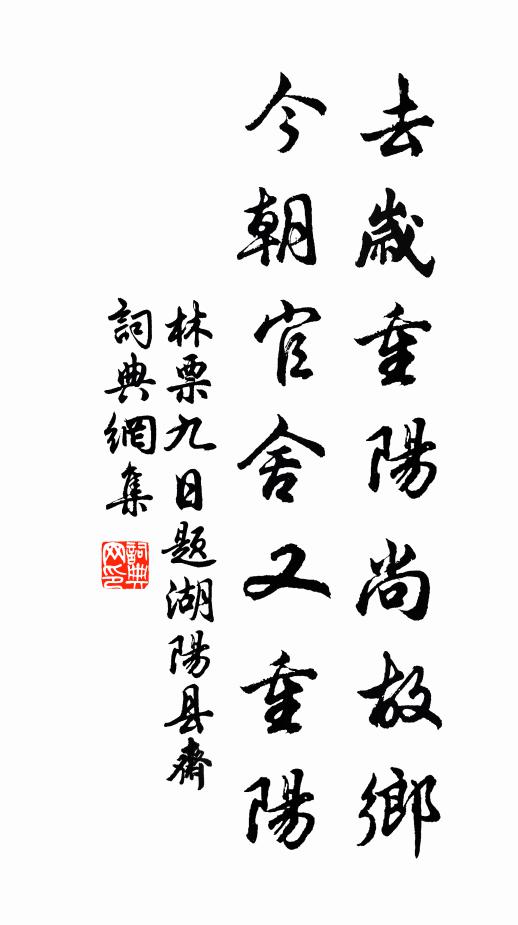 去歲重陽尚故鄉
今朝官舍又重陽
林票九日題湖陽县齋
詞典網集
詞典網印